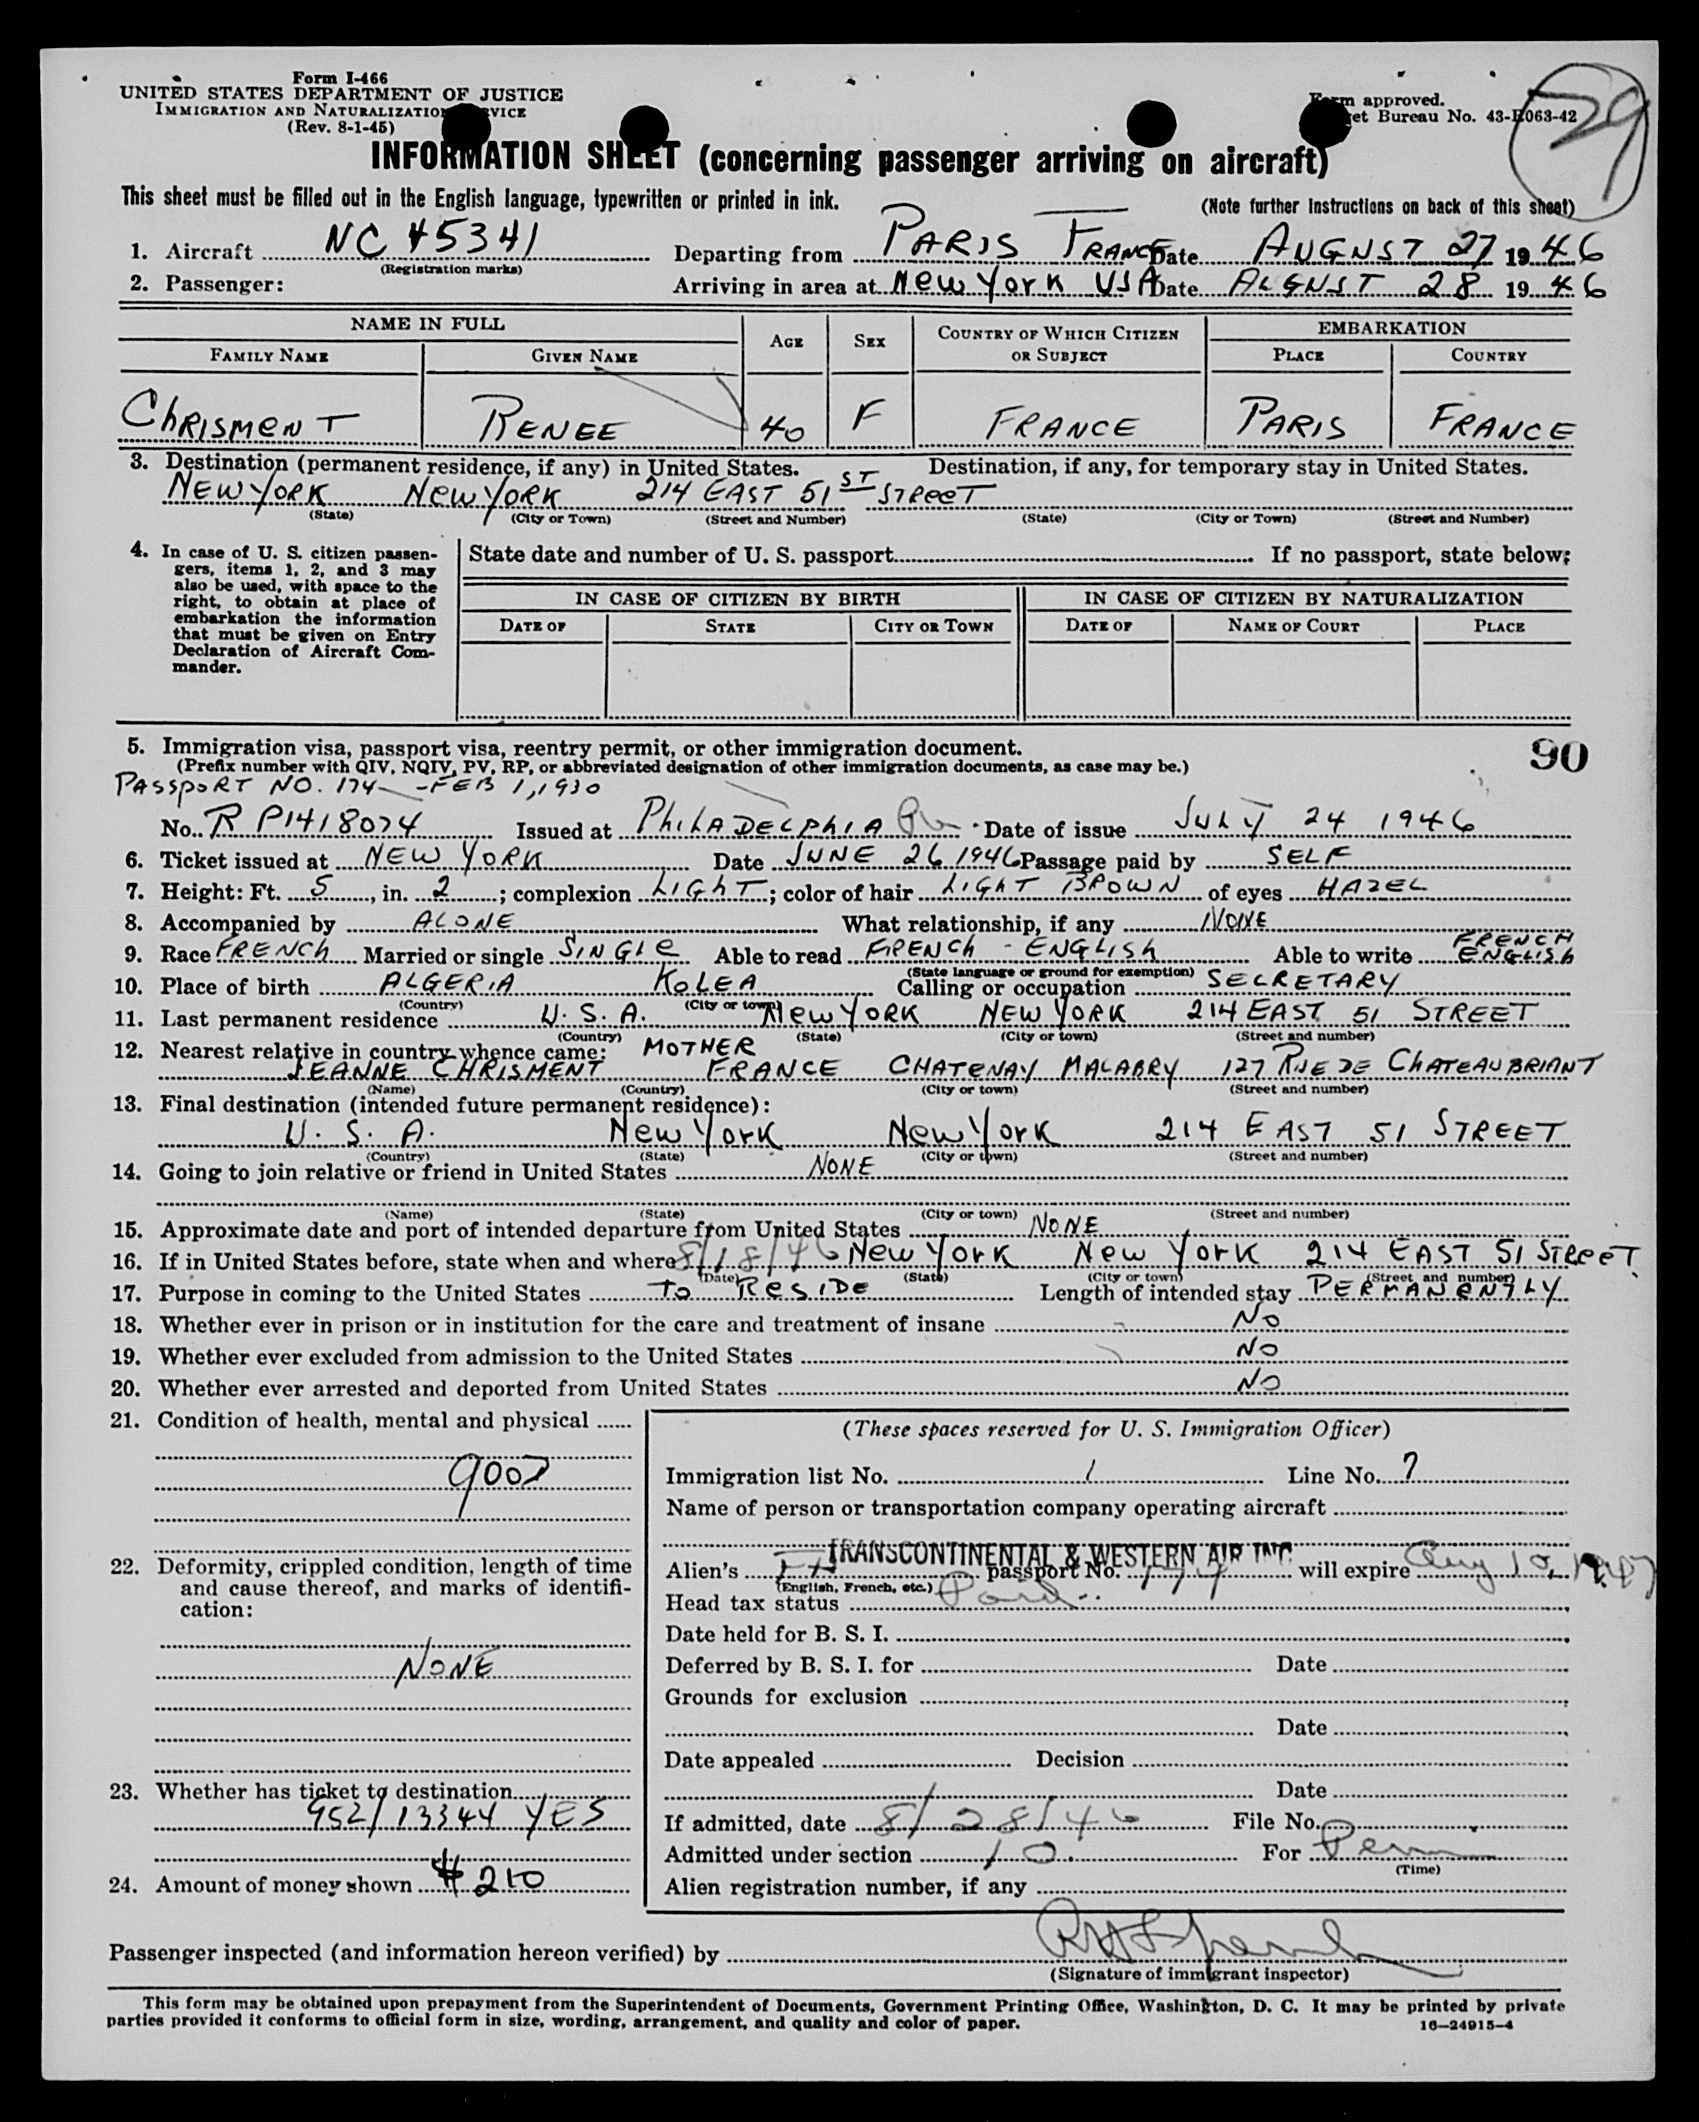 Form I-466
UNITED STATES DEPARTMENT OF JUSTICE
IMMIGRATION AND NATURALIZATION SERVICE
(Rev. 8-1-45)
Form approved.
Budget Bureau No. 43-R063-42
29
INFORMATION SHEET (concerning passenger arriving on aircraft)
This sheet must be filled out in the English language, typewritten or printed in ink.
(Note further instructions on back of this sheet)
1. Aircraft NC 45341 Departing from PARIS FRANCE Date AUGNST 27 1946
(Registration marks)
2. Passenger: Arriving in area at New York USA Date AUGNST 28 1946
NAME IN FULL AGE SEX COUNTRY OF WHICH CITIZEN OR SUBJECT EMBARKATION
FAMILY NAME GIVEN NAME PLACE COUNTRY
ChRISMENT RENEE 40 F FRANCE PARIS FRANCE
3. Destination (permanent residence, if any) in United States. Destination, if any, for temporary stay in United States.
NEW YORK New YORK 214 EAST 51 ST STReeT
(State) (City or Town) (Street and Number) (State) (City or Town) (Street and Number)
4. In case of U. S. citizen passen-
gers, items 1, 2, and 3 may
also be used, with space to the
right, to obtain at place of
embarkation the information
that must be given on Entry
Declaration of Aircraft Com-
mander.
State date and number of U. S. passport If no passport, state below:
IN CASE OF CITIZEN BY BIRTH IN CASE OF CITIZEN BY NATURALIZATION
DATE OF STATE CITY OR TOWN DATE OF NAME OF COURT PLACE
5. Immigration visa, passport visa, reentry permit, or other immigration document.
90
(Prefix number with QIV, NQIV, PV, RP, or abbreviated designation of other immigration documents, as case may be.)
PASSPORT NO. 174 - FEB 1, 1930
No. R P1418074 Issued at PhILADELPhIA Date of issue JULY 24 1946
6. Ticket issued at NEW YORK Date JUNE 26 1946 Passage paid by SELF
7. Height: Ft. 5, in. 2; complexion LIGhT; color of hair LIGhT BROWN of eyes HAZEL
8. Accompanied by ALONE What relationship, if any NONE
9. Race FRENCh Married or single SINGLe Able to read FRENCh - ENGLISh Able to write FRENCH ENGLISh
(State language or ground for exemption)
10. Place of birth ALGERIA KOLEA Calling or occupation SECRETARY
(Country) (City or town)
11. Last permanent residence U. S. A. New YORK NEW YORK 214 EAST 51 STREET
(Country) (State) (City or town) (Street and number)
12. Nearest relative in country whence came: MOTHER
JEANNE CHRISMENT FRANCE CHATENAY MALABRY 127 RUE DE ChATEAUBRIANT
(Name) (Country) (City or town) (Street and number)
13. Final destination (intended future permanent residence):
U. S. A. New York New York 214 EAST 51 STREET
(Country) (State) (City or town) (Street and number)
14. Going to join relative or friend in United States NONE
(Name) (State) (City or town) (Street and number)
15. Approximate date and port of intended departure from United States NONE
16. If in United States before, state when and where 8/18/46 New York New York 214 EAST 51 STReeT
(Date) (State) (City or town) (Street and number)
17. Purpose in coming to the United States To ReSIDE Length of intended stay PERMANeNTLY
18. Whether ever in prison or in institution for the care and treatment of insane No
19. Whether ever excluded from admission to the United States No
20. Whether ever arrested and deported from United States No
21. Condition of health, mental and physical
good
22. Deformity, crippled condition, length of time
and cause thereof, and marks of identifi-
cation:
NONE
23. Whether has ticket to destination
952/13344 YES
24. Amount of money shown $ 210
(These spaces reserved for U. S. Immigration Officer)
Immigration list No. 1 Line No. 7
Name of person or transportation company operating aircraft
TRANSCONTINENTAL & WESTERN AIR INC.
Alien's Fr passport No. 174 will expire Aug 10, 1947
(English, French, etc.)
Head tax status Paid
Date held for B. S. I.
Deferred by B. S. I. for Date
Grounds for exclusion
Date
Date appealed Decision
Date
If admitted, date 8/28/46 File No.
Admitted under section 10. For Perm
(Time)
Alien registration number, if any
Passenger inspected (and information hereon verified) by
(Signature of immigrant inspector)
This form may be obtained upon prepayment from the Superintendent of Documents, Government Printing Office, Washington, D. C. It may be printed by private
parties provided it conforms to official form in size, wording, arrangement, and quality and color of paper.
16—24915-4